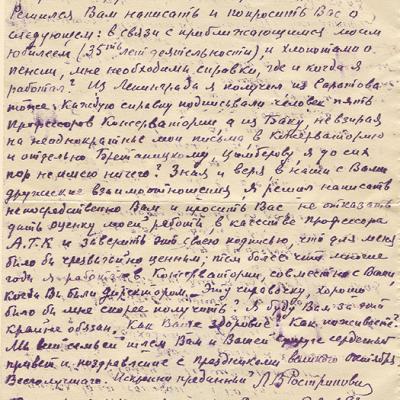 Решился Вам написать и попросить Вас о
следующем: в связи с приближающимся моим
юбилеем (35ти лет деятельности), и хлопотами о
пенсии, мне необходимы справки, где и когда я
работал? Из Ленинграда я получил из Саратова
тоже. Каждую справку подписывали человек пять
Профессоров Консерватории а из Баку, невзирая
на неоднократные мои письма в Консерваторию
и отдельно я до сих
пор не имею ничего? Зная и веря в наши с Вами
дружеские взаимоотношения я решил написать
непосредственно Вам и просить Вас не отказать
дать оценку моей работы в качестве профессора
А.Г.К и заверить это своею подписью, что для меня
было бы чрезвычайно ценным, тем более что многие
годы я работал в Консерватории, совместно с Вами,
когда Вы были директором. Эту справочку, хорошо
было бы мне скорее получить? Я буду Вам за это
крайне обязан. Как Ваше здоровье? Как поживаете?
Мы всей семьей шлем Вам и Вашей супруге сердечный
привет и поздравление с праздниками великого октября
Всего лучшего. Искренно преданный Л Ростропович